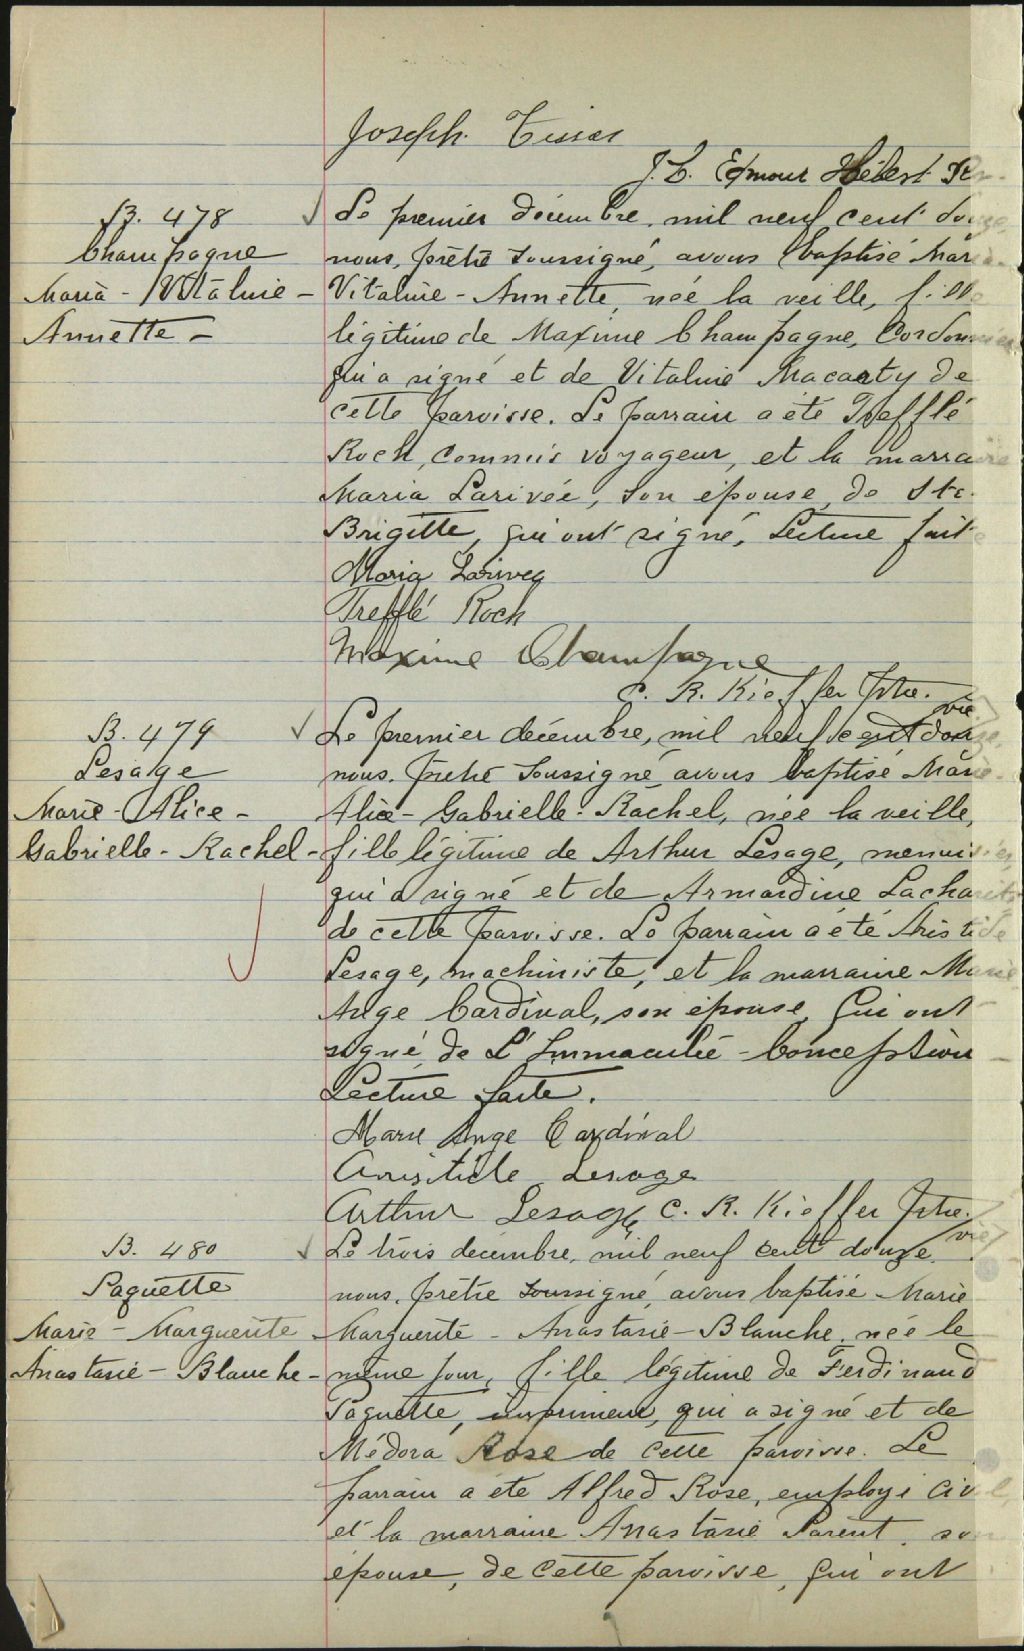 Joseph Tessier
J. L. Edmour Hébert Ptr.
B. 478
Champagne
Maria - Vitaline -
Annette -
Le premier décembre, mil neuf cent douze,
nous, prêtre soussigné, avons baptisé Maria-
Vitaline - Annette, née la veille, fille
légitime de Maxime Champagne, Cordonnier
qui a signé et de Vitaline Macarty de
cette paroisse. Le parrain a été Trefflé
Roch, commis voyageur, et la marraine
Maria Larivée, son épouse, de Ste-
Brigitte, qui ont signé. Lecture faite
Maria Larivee
Trefflé Roch
Maxime Champagne
C. R. Kieffer Ptre. vic.
B. 479
Lesage
Marie - Alice -
Gabrielle - Rachel -
Le premier décembre, mil neuf cent douze,
nous, prêtre soussigné, avons baptisé Marie-
Alice - Gabrielle - Rachel, née la veille,
fille légitime de Arthur Lesage, menuisier,
qui a signé et de Armardine Lacharité
de cette paroisse. Le parrain a été Aristide
Lesage, machiniste, et la marraine Marie
Ange Cardinal, son épouse, qui ont
signé, de L'Immaculée - Conception -
Lecture faite.
Marie Ange Cardinal
Aristide Lesage
Arthur Lesage C. R. Kieffer Ptre. vic.
B. 480
Paquette
Marie - Marguerite
Anastasie - Blanche -
Le trois décembre, mil neuf cent douze,
nous, prêtre soussigné, avons baptisé Marie
Marguerite - Anastasie - Blanche, née le
même jour, fille légitime de Ferdinand
Paquette, imprimeur, qui a signé et de
Médora Rose de cette paroisse. Le
parrain a été Alfred Rose, employé civil,
et la marraine Anastasie Parent, son
épouse, de cette paroisse, qui ont